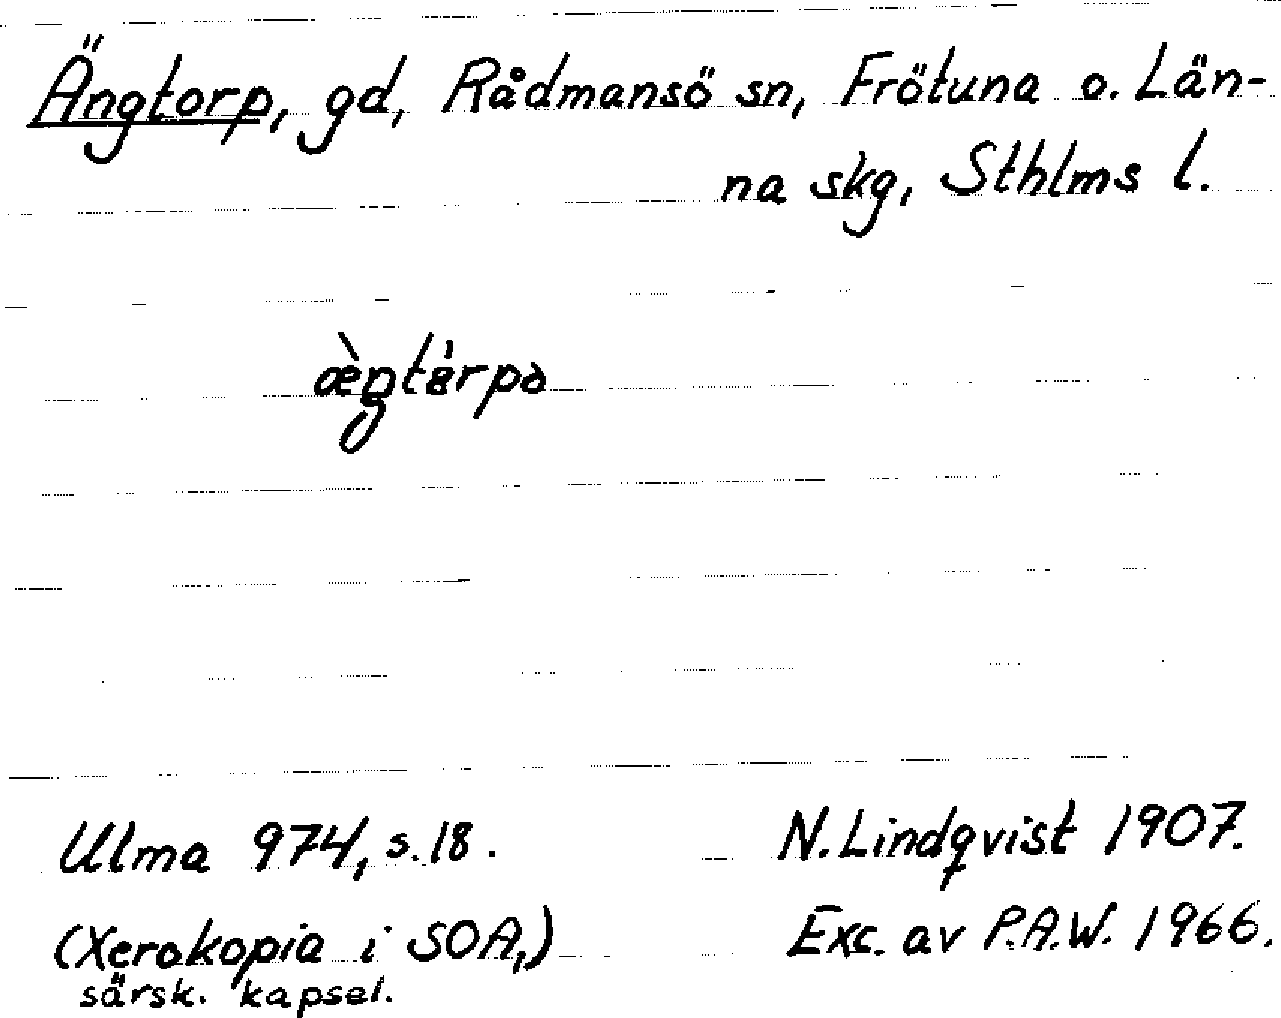 Ängtorp, gd, Rådmansö sn, Frötuna o. Län-
na skg, Sthlms l.
Ulma 974, s. 18.
N. Lindqvist 1907.
(Xerokopia i SOA,)
särsk. kapsel.
Exc. av P.A.W. 1966.